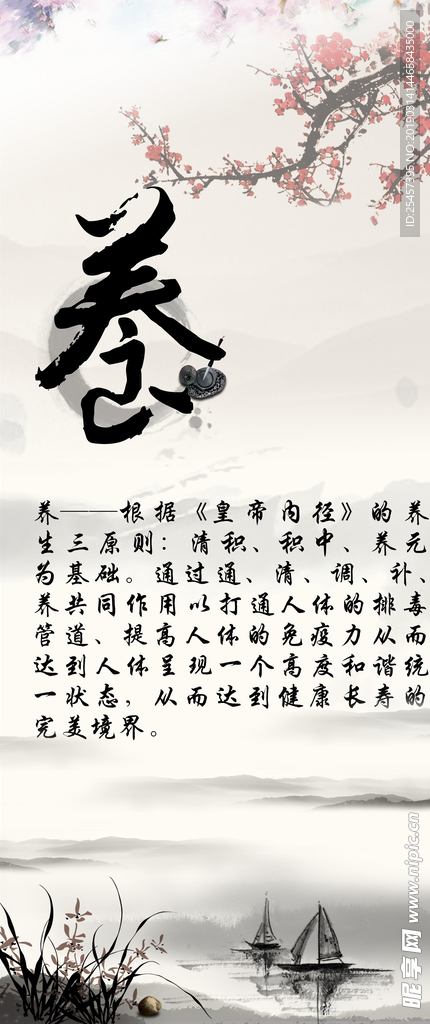 養
养——根据《皇帝内径》的养
生三原则：清积、积中、养元
为基础。通过通、清、调、补、
养共同作用以打通人体的排毒
管道、提高人体的免疫力从而
达到人体呈现一个高度和谐统
一状态，从而达到健康长寿的
完美境界。
ID:25457395 NO:20190314144658435000
昵享网 www.nipic.cn